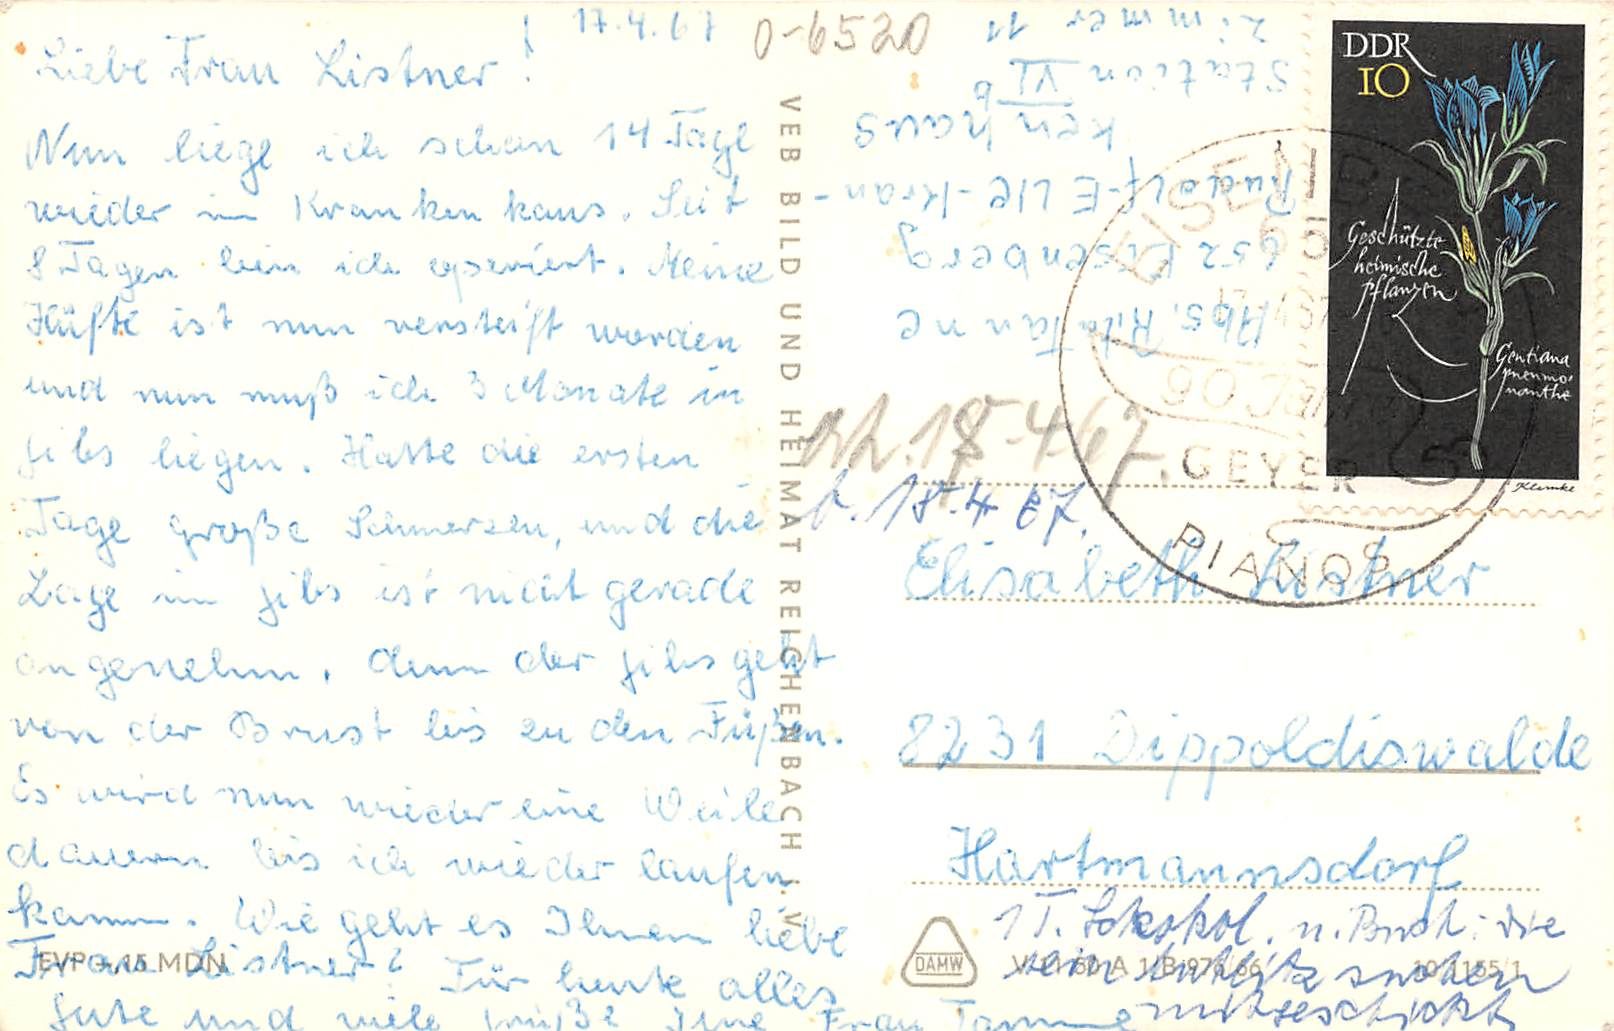 17.4.67
Liebe Frau Listner!
Nun liege ich schon 14 Tage
wieder im Krankenhaus. Seit
8 Tagen bin ich operiert. Meine
Hüfte ist nun versteift worden
und nun muß ich 3 Monate in
Jibs liegen. Hatte die ersten
Tage große Schmerzen, und die
Lage im Jibs ist nicht gerade
angenehm, denn der Jibs geht
von der Brust bis zu den Füßen.
Es wird nun wieder eine Weile
dauern bis ich wieder laufen
kann. Wie geht es Ihnen liebe
Frau Listner? Für heute alles
Gute und viele Grüße Ihre Frau Tanne
EVP -,15 MDN
VEB BILD UND HEIMAT REICHENBACH i. V.
0-6520
Abs. Rita Tanne
652 Eisenberg
Rudolf-Elle-Kran-
kenhaus
Station VI b
Zimmer 11
DDR
10
Geschützte
heimische
Pflanzen
Gentiana
pneumo-
nanthe
Klemke
EISENBERG
90 Jahre
GEYER
PIANOS
18.4.67.
b. 18.4.67.
Elisabeth Listner
8231 Dippoldiswalde
Hartmannsdorf
1 T. u. Buch. die
mitgeschickt
DAMW